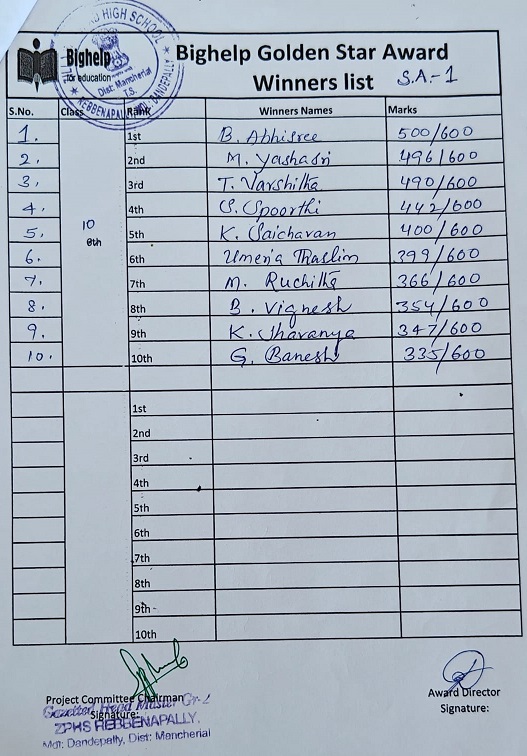 HIGH SCHOOL
REBBENAPALLY, MDL: DANDEPALLY
Dist: Mancherial
T.S.
Bighelp
for education
Bighelp Golden Star Award
Winners list S.A-1
S.No. Class Rank Winners Names Marks
1. 1st B. Abhisree 500/600
2. 2nd M. Yashasri 496/600
3. 3rd T. Varshitha 490/600
4. 4th S. Spoorthi 442/600
5. 10 6th 5th K. Saicharan 400/600
6. 6th Umera Thaslim 399/600
7. 7th M. Ruchitha 366/600
8. 8th B. Vignesh 354/600
9. 9th K. Sharanya 347/600
10. 10th G. Banesh 335/600
1st
2nd
3rd
4th
5th
6th
7th
8th
9th
10th
Project Committee Chairman
Gazetted Head Master Gr-2
Signature:
ZPHS REBBENAPALLY,
Mdl: Dandepally, Dist: Mancherial
Award Director
Signature: